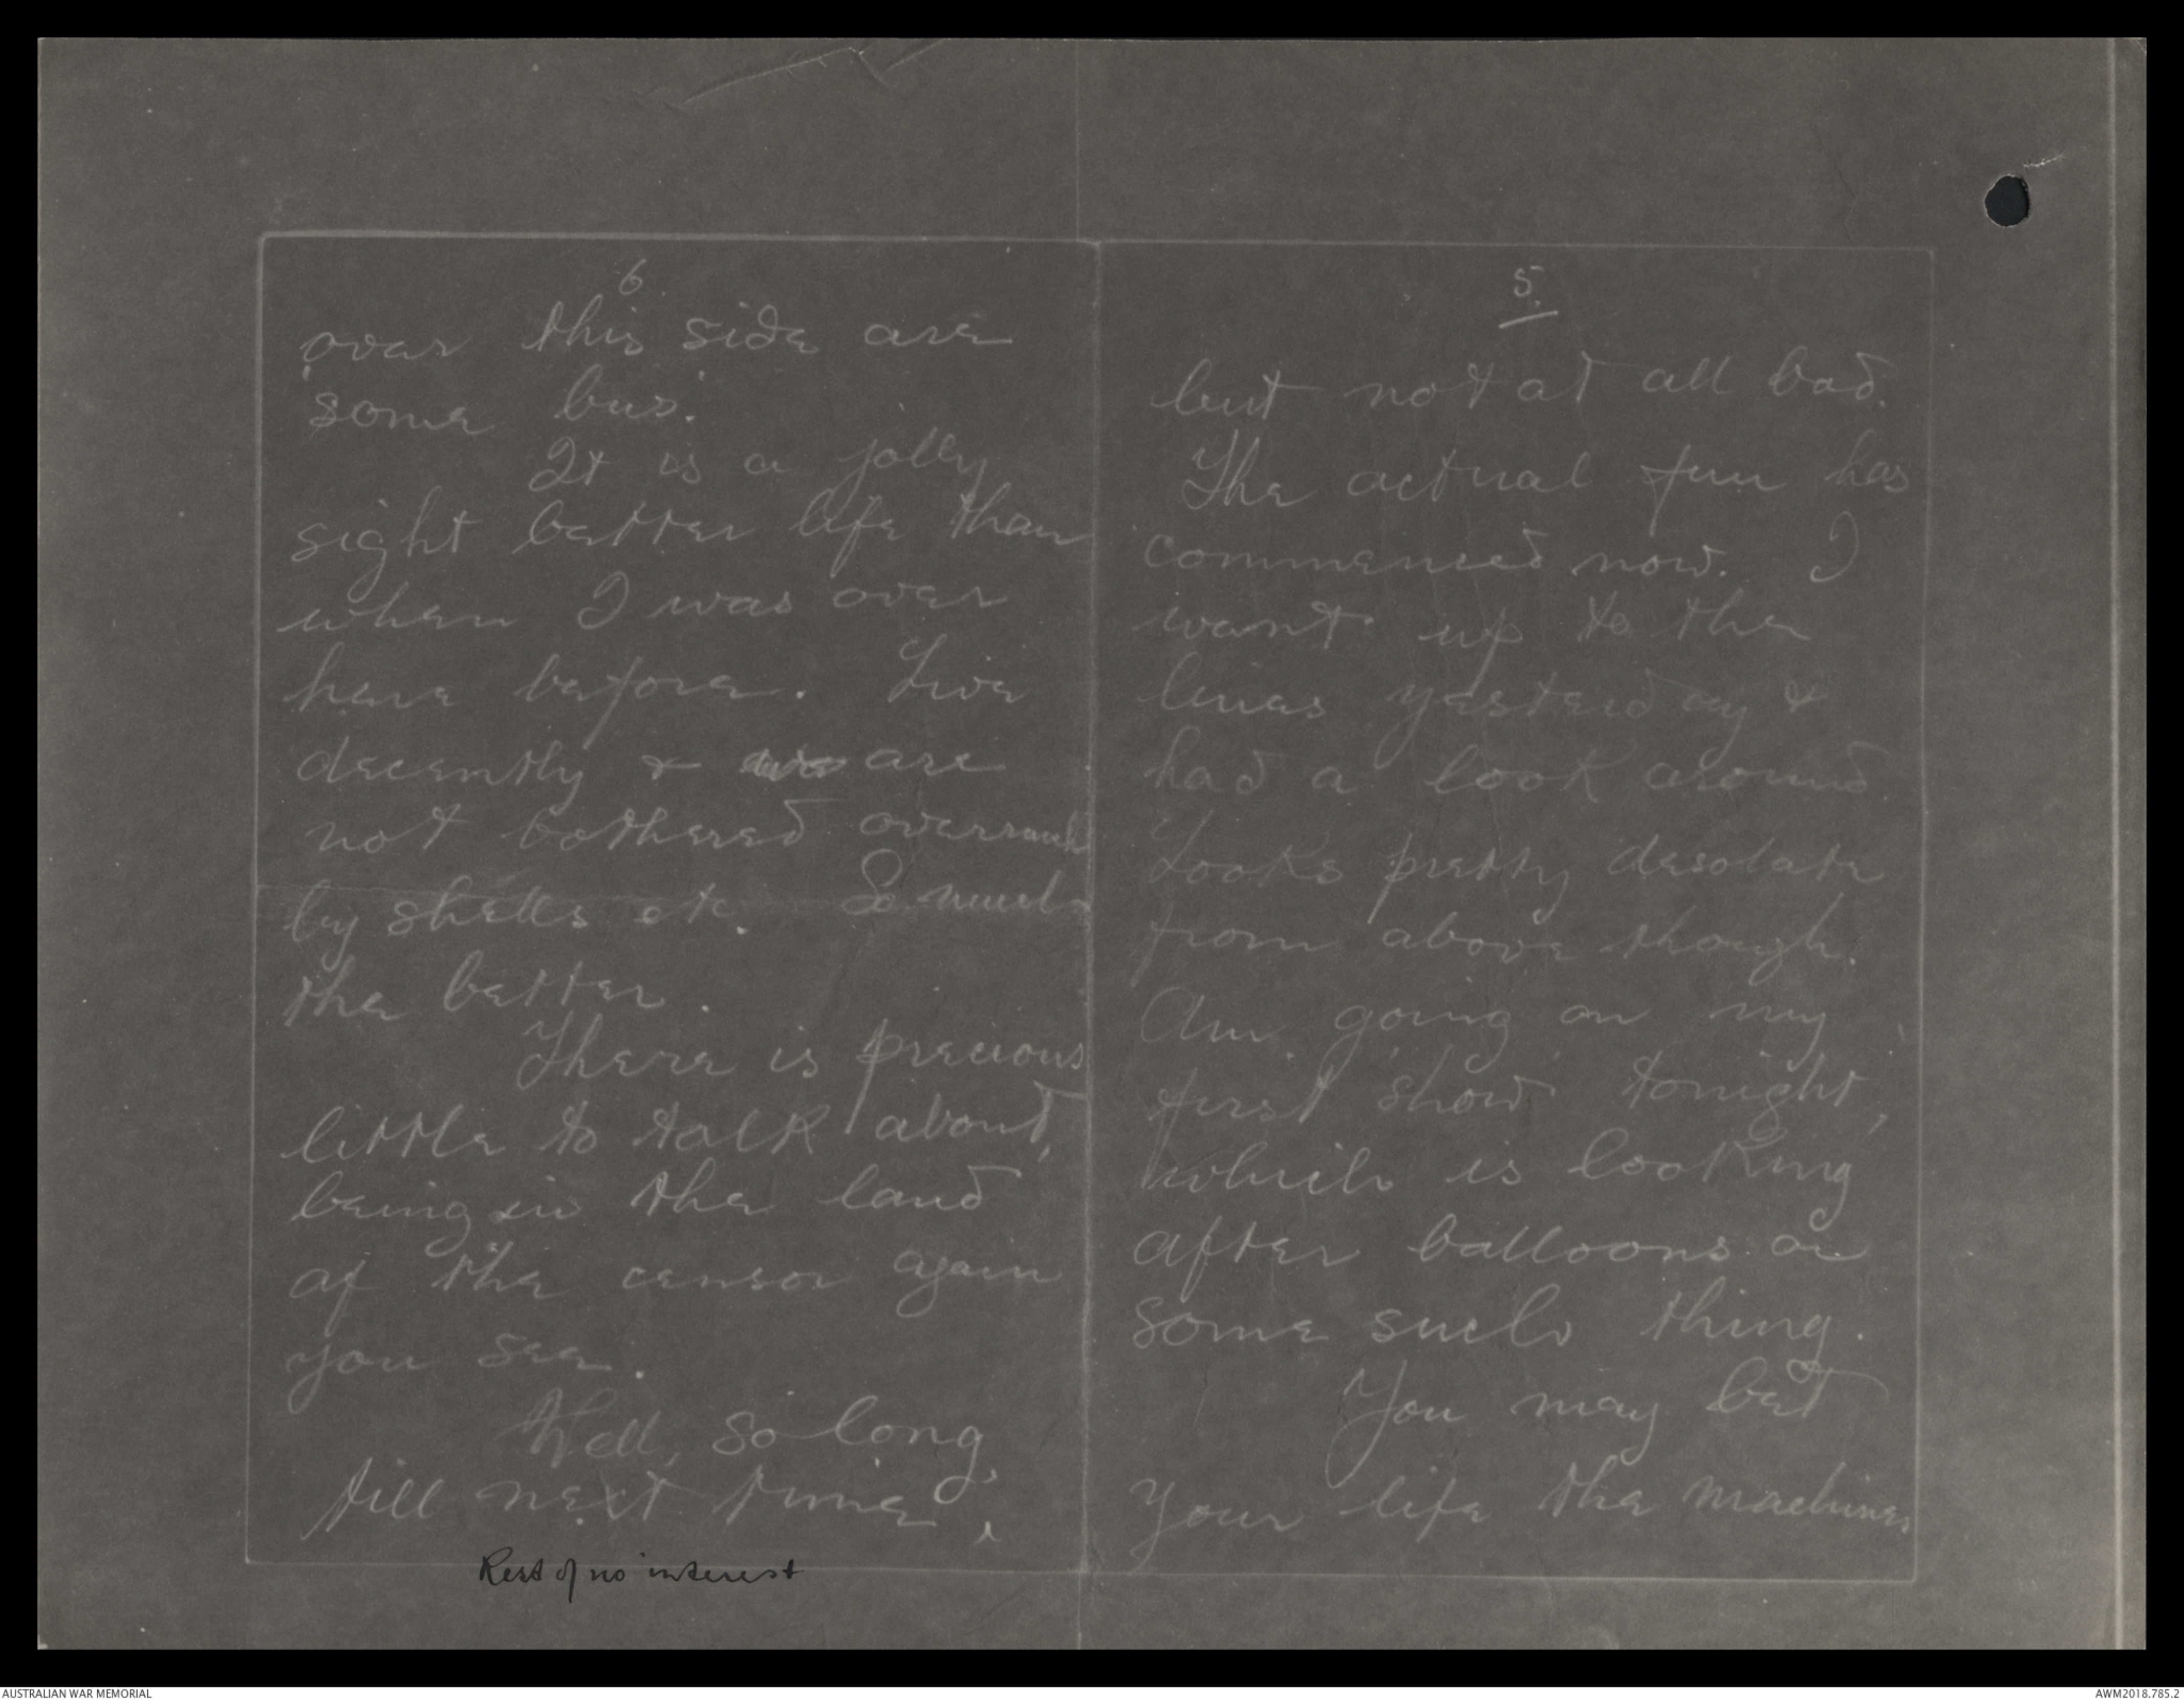 5.
but not at all bad.
The actual fun has
commenced now. I
went up to the
lines yesterday &
had a look around.
Looks pretty desolate
from above though.
Am going on my
first 'show' tonight,
which is looking
after balloons or
some such thing.
You may bet
your life the machines
6
over this side are
'some bus.'
It is a jolly
sight better life than
when I was over
here before. Live
decently & are
not bothered overmuch
by shells etc. So much
the better.
There is precious
little to talk about,
being in the land
of the censor again
you see.
Well, so long,
till next time,
Rest of no interest
AUSTRALIAN WAR MEMORIAL
AWM2018.785.2